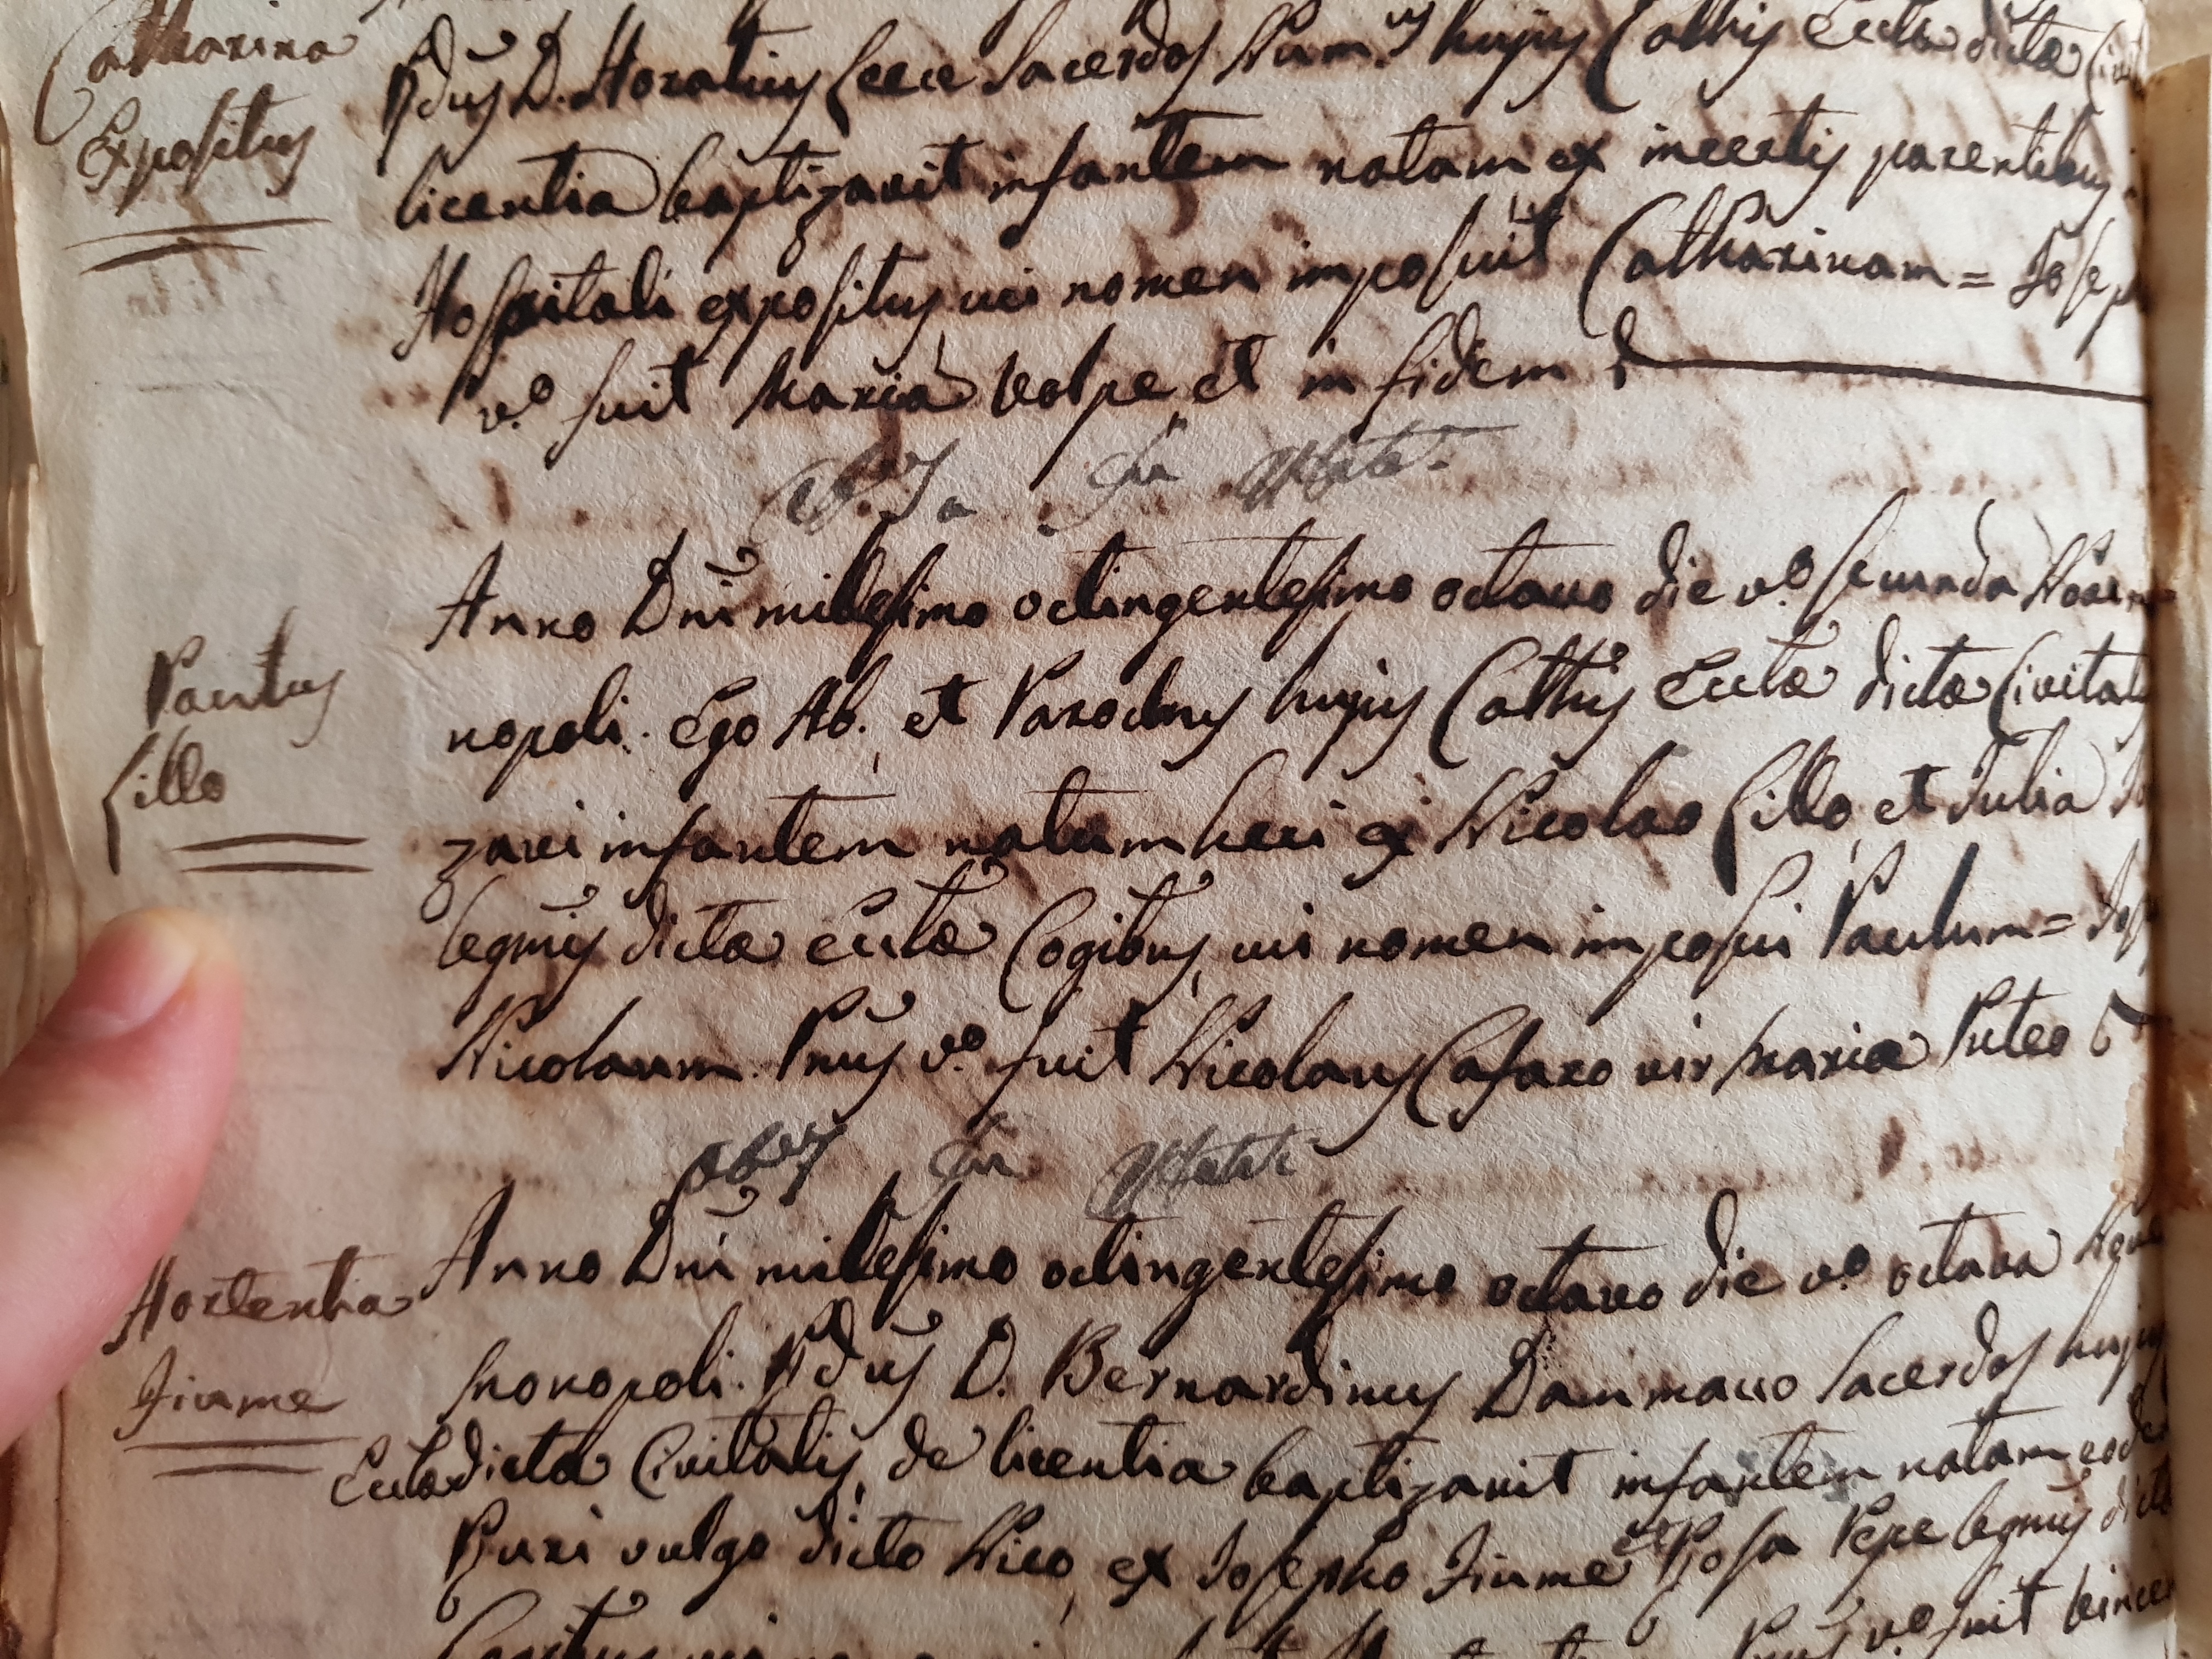 Catharina
Expositus
Rdus D. Horatius Cece Sacerdos Num.us hujus Cathis Eccla dicta
licentia baptizavit infantem natam ex incertis parentibus
Hospitali expositus cui nomen imposuit Catharinam = Joseph
v.o fuit Maria Volpe, et in fidem
Anno Dni millesimo octingentesimo octavo die v.o secunda
nopoli. Ego Ab. et Parochus hujus Cathis Ecclæ dictæ Civitatis
Paulus
Lillo
zavi infantem natum heri ex Nicolao Lillo, et Julia
legmis dictæ Ecclæ Cogibus, cui nomen imposui Paulum =
Nicolaum. Pnus v.o fuit Nicolaus Cafaro vir Mariæ Puteo
Anno Dni millesimo octingentesimo octavo die v.o octava
Hortentia
Fiume
Monopoli. Rdus D. Bernardinus Dammacco Sacerdos hujus
Ecclæ dictæ Civitatis, de licentia baptizavit infantem natam
Ruri vulgo dicto Nico, ex Josepho Fiume et Rosa Pepe legmis
v.o fuit